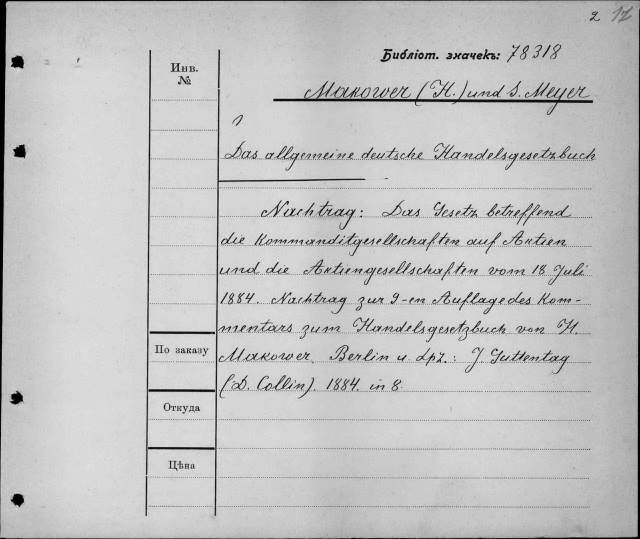 2 12
Библіот. значекъ: 78318
Инв.
№
Makower (H.) und S. Meyer
Das allgemeine deutsche Handelsgesetzbuch
Nachtrag: Das Gesetz betreffend
die Kommanditgesellschaften auf Aktien
und die Aktiengesellschaften vom 18 Juli
1884. Nachtrag zur 9-en Auflage des Kom-
mentars zum Handelsgesetzbuch von H.
Makower. Berlin u. Lpz.: J Guttentag
(D. Collin). 1884. in 8
По заказу
Откуда
Цѣна